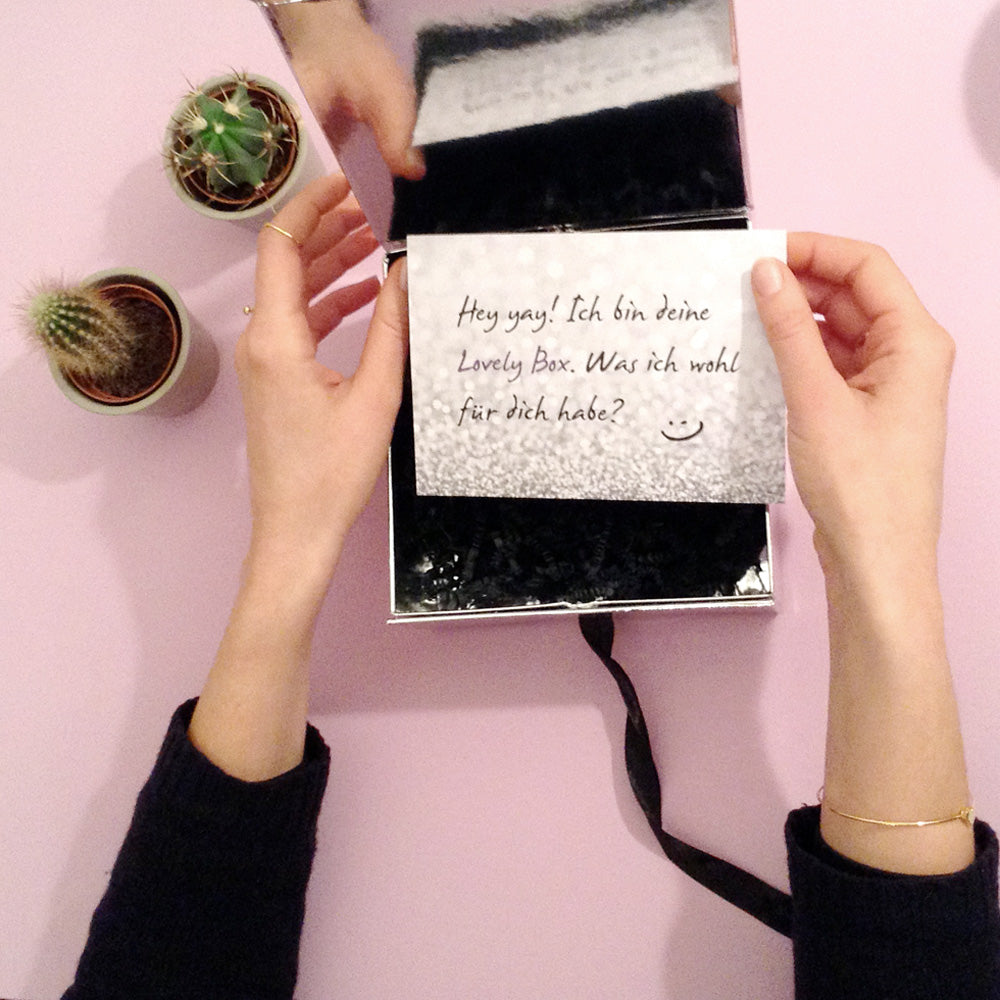 Hey yay! Ich bin deine
Lovely Box. Was ich wohl
für dich habe?